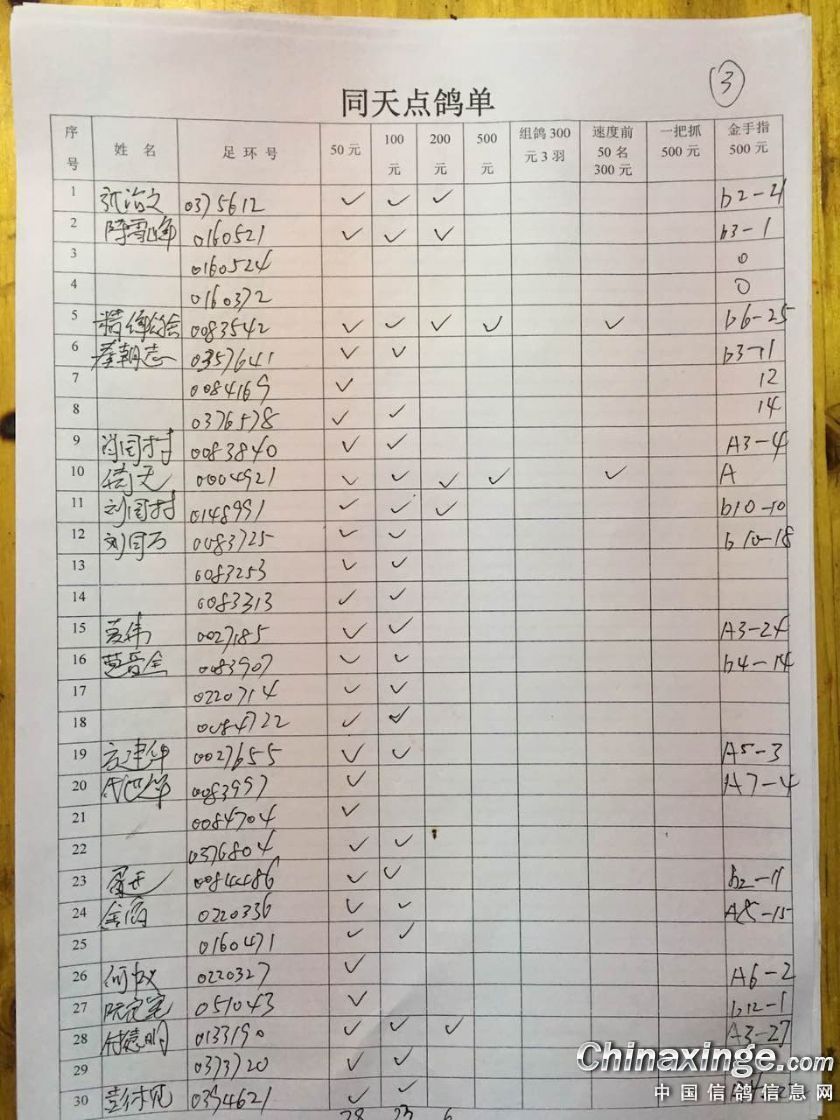 3
同天点鸽单
序号 姓名 足环号 50元 100元 200元 500元 组鸽300元3羽 速度前50名300元 一把抓500元 金手指500元
1 张治文 0375612 ✓ ✓ ✓ b2-21
2 陈雪峰 0160521 ✓ ✓ ✓ b3-1
3 0160524 0
4 0160372 0
5 0083542 ✓ ✓ ✓ ✓ ✓ b6-25
6 秦朝志 0357641 ✓ ✓ b3-11
7 0084169 ✓ 12
8 0376578 ✓ ✓ 14
9 肖国村 0083840 ✓ ✓ A3-4
10 倚天 0004921 ✓ ✓ ✓ ✓ ✓ A
11 刘国村 0148991 ✓ ✓ ✓ b10-10
12 刘国万 0083725 ✓ ✓ b10-18
13 0083253 ✓ ✓
14 0083313 ✓ ✓
15 0027185 ✓ ✓ A3-24
16 0083907 ✓ ✓ b4-14
17 0220714 ✓ ✓
18 0084722 ✓ ✓
19 0027655 ✓ ✓ A5-3
20 0083997 ✓ A7-4
21 0084704 ✓
22 0376804 ✓ ✓
23 0084486 ✓ ✓ b2-17
24 0220336 ✓ ✓ A5-15
25 0160471 ✓ ✓
26 0220327 ✓ A6-2
27 阮定宽 051043 ✓ b12-1
28 付德明 0133190 ✓ ✓ ✓ A3-27
29 0373720 ✓ ✓
30 0394621 ✓ ✓
28 23 6
Chinaxinge.com
中国信鸽信息网